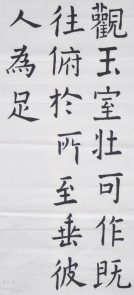 觀玉室壯可作既
往俯於所至垂彼
人為足